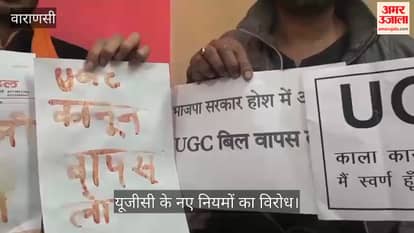 वाराणसी
अमर उजाला
amarujala.com
UGC
कानून
वापस
लो
भाजपा सरकार होश में
UGC बिल वापस
काला
मैं स्वर्ण हूँ
यूजीसी के नए नियमों का विरोध।